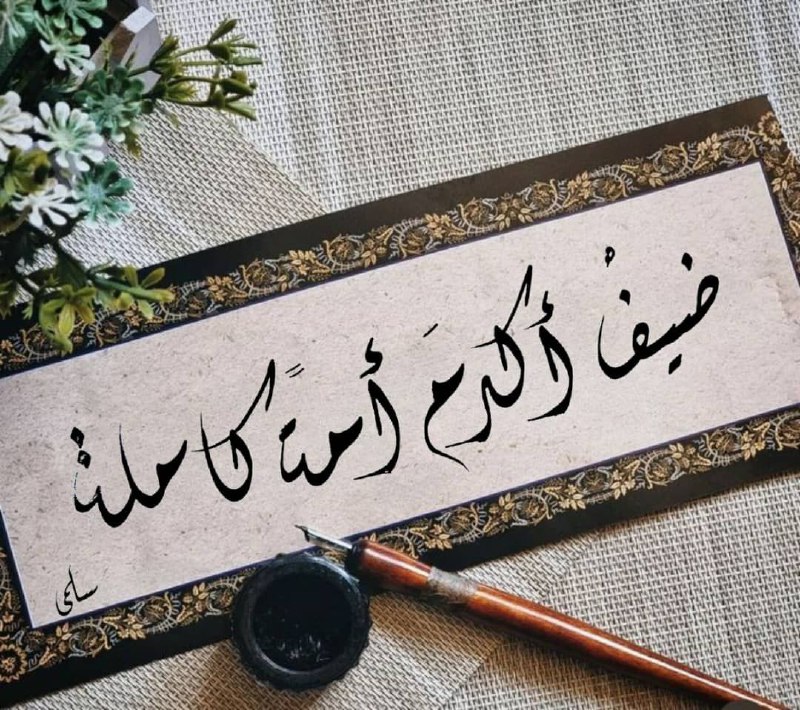 ضيفُ أكرمَ أمةً كاملة
سلمى